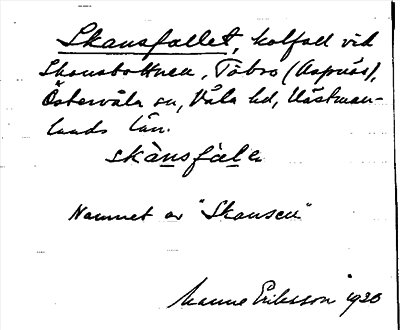 Skansfallet, kolfall vid
Skansbottnen, Töbro (Aspnäs),
Östervåla sn, Våla hd, Västman-
lands län.
skànsfàlɛ
Namnet av "Skansen"
Manne Eriksson 1920